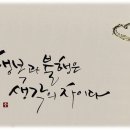 행복과 불행은
생각의 차이다